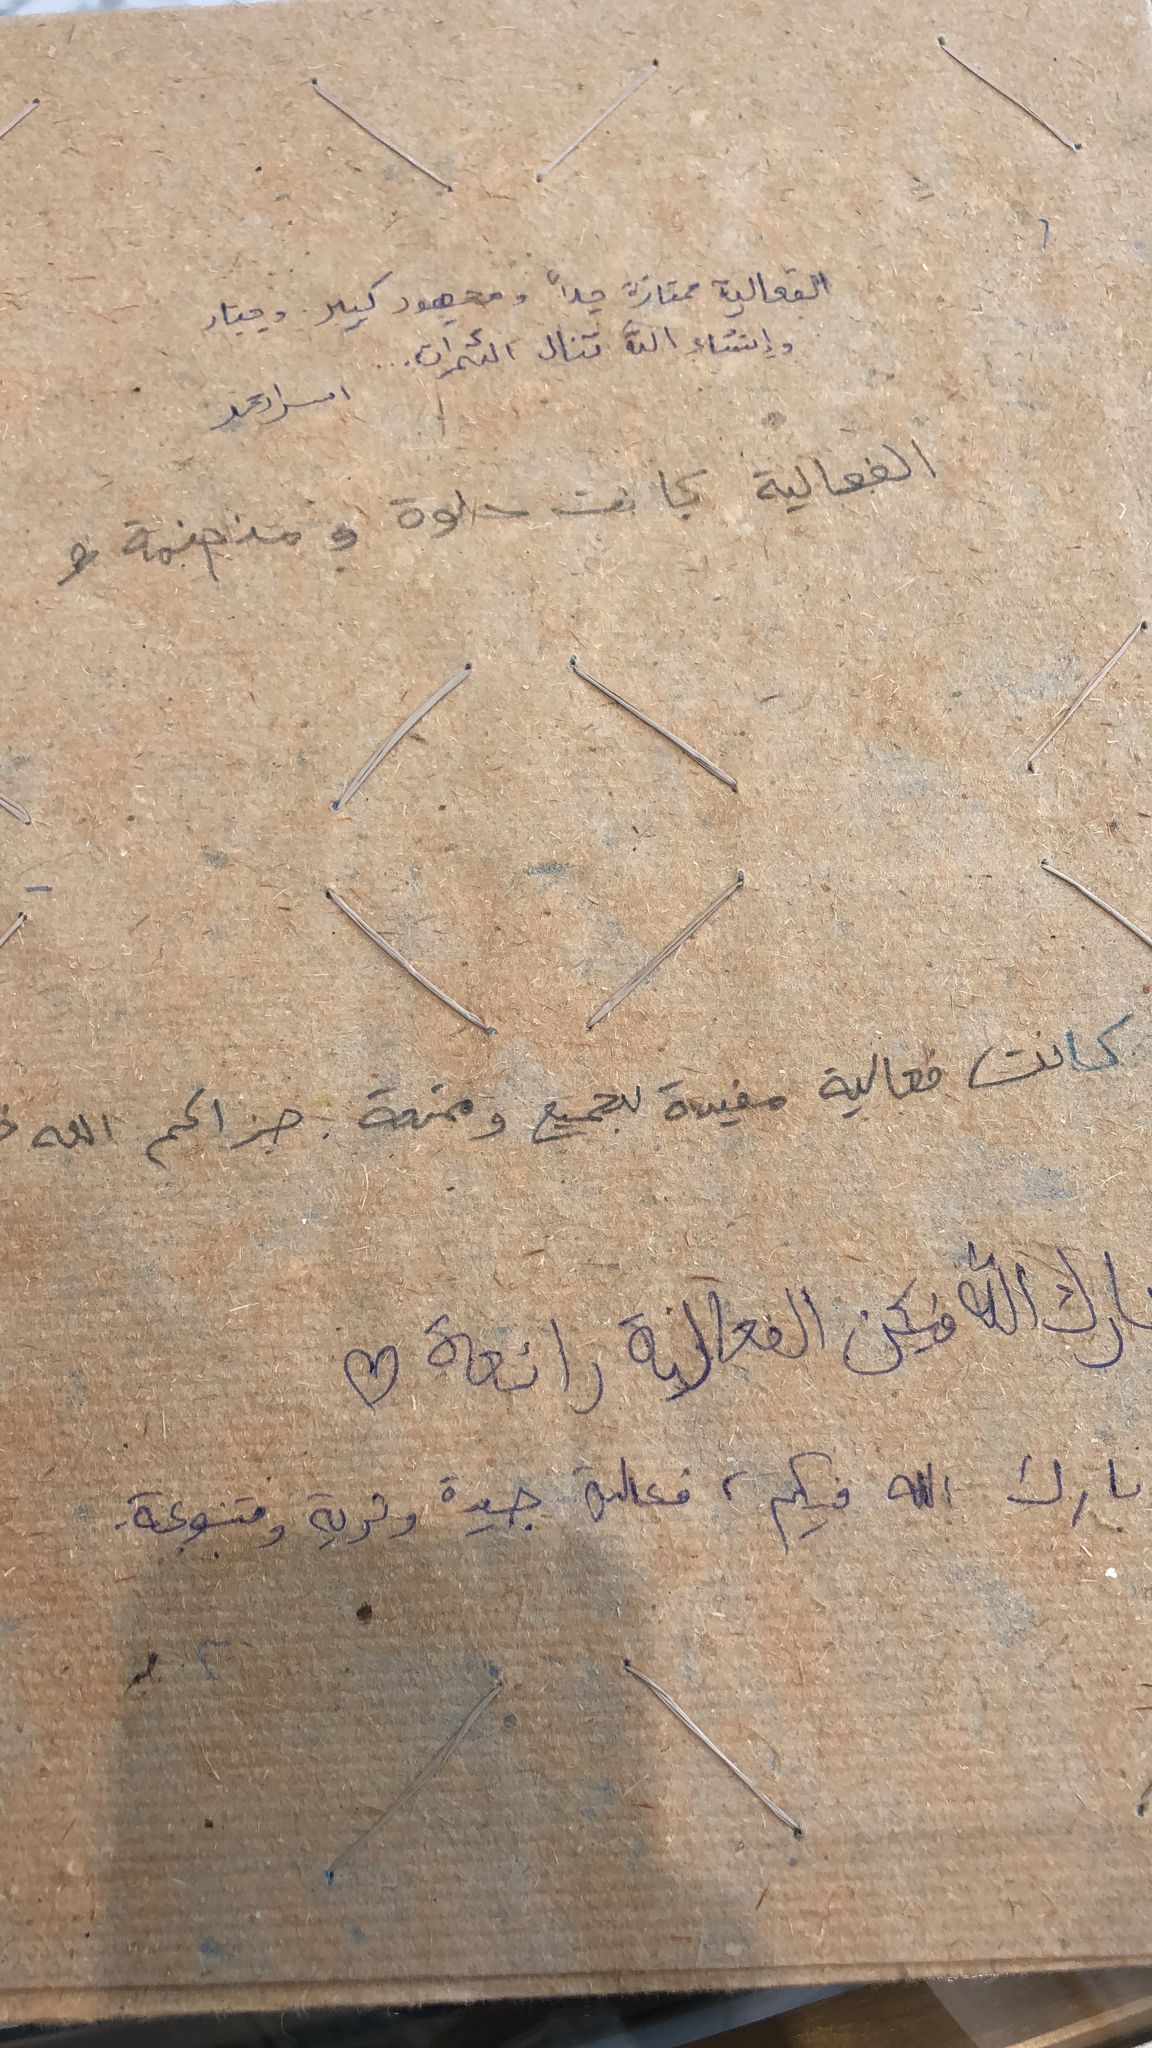 الفعالية ممتازة جداً ومجهود كبير وجبار
وإنشاء الله تنال الثمرات...
الفعالية كانت حلوة و منضمة
كانت فعالية مفيدة للجميع وممتعة. جزاكم الله
بارك الله فيكن الفعالية رائعة ♡
بارك الله فيكم، فعالية جيدة وقوية ومتنوعة.